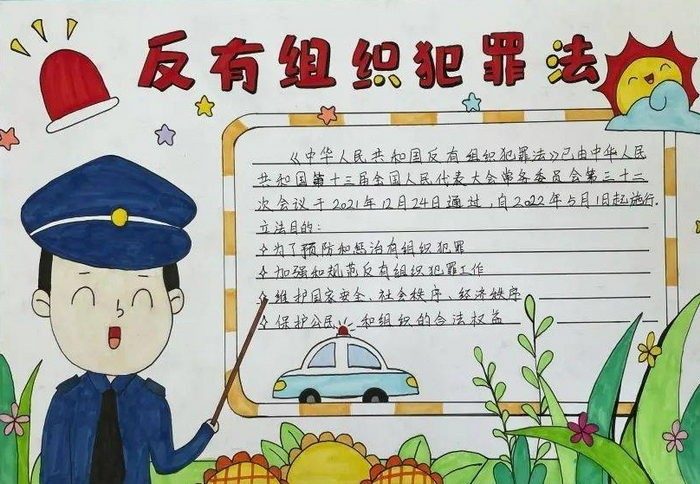 反有组织犯罪法
《中华人民共和国反有组织犯罪法》已由中华人民
共和国第十三届全国人民代表大会常务委员会第三十二
次会议于2021年12月24日通过，自2022年5月1日起施行.
立法目的：
为了预防和惩治有组织犯罪
加强和规范反有组织犯罪工作
维护国家安全、社会秩序、经济秩序
保护公民 和组织的合法权益